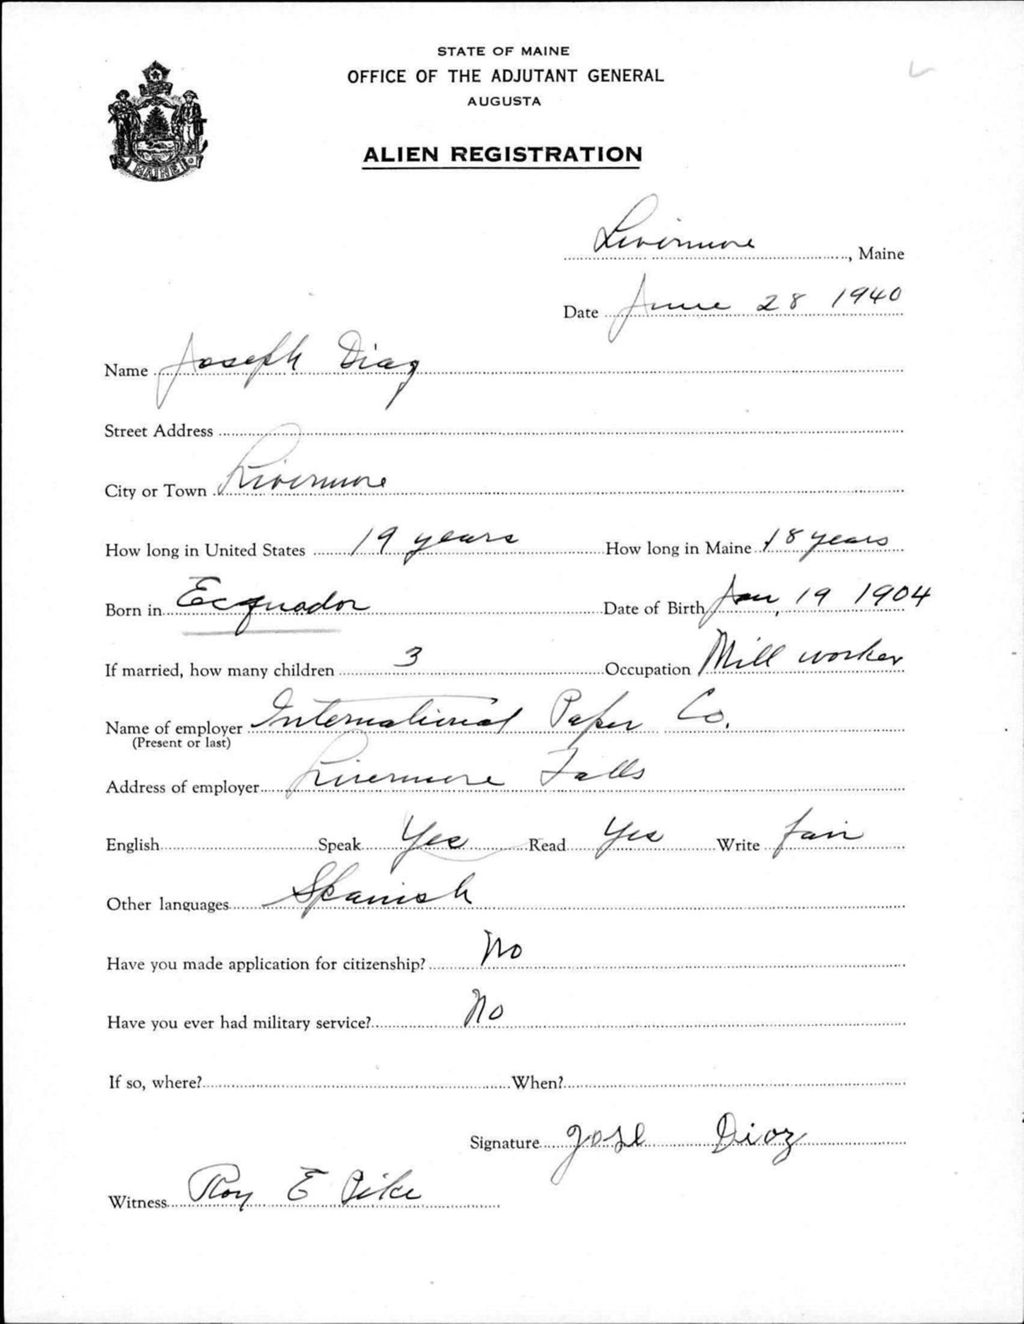 STATE OF MAINE
OFFICE OF THE ADJUTANT GENERAL
AUGUSTA
ALIEN REGISTRATION
MAINE
Livermore, Maine
Date June 28 1940
Name Joseph Diaz
Street Address
City or Town Livermore
How long in United States 19 years How long in Maine 18 years
Born in Ecquador Date of Birth Jan, 19 1904
If married, how many children 3 Occupation Mill worker
Name of employer International Paper Co.
(Present or last)
Address of employer Livermore Falls
English Speak Yes Read Yes Write fair
Other languages Spanish
Have you made application for citizenship? No
Have you ever had military service? No
If so, where? When?
Signature Jose Diaz
Witness Roy E Pike